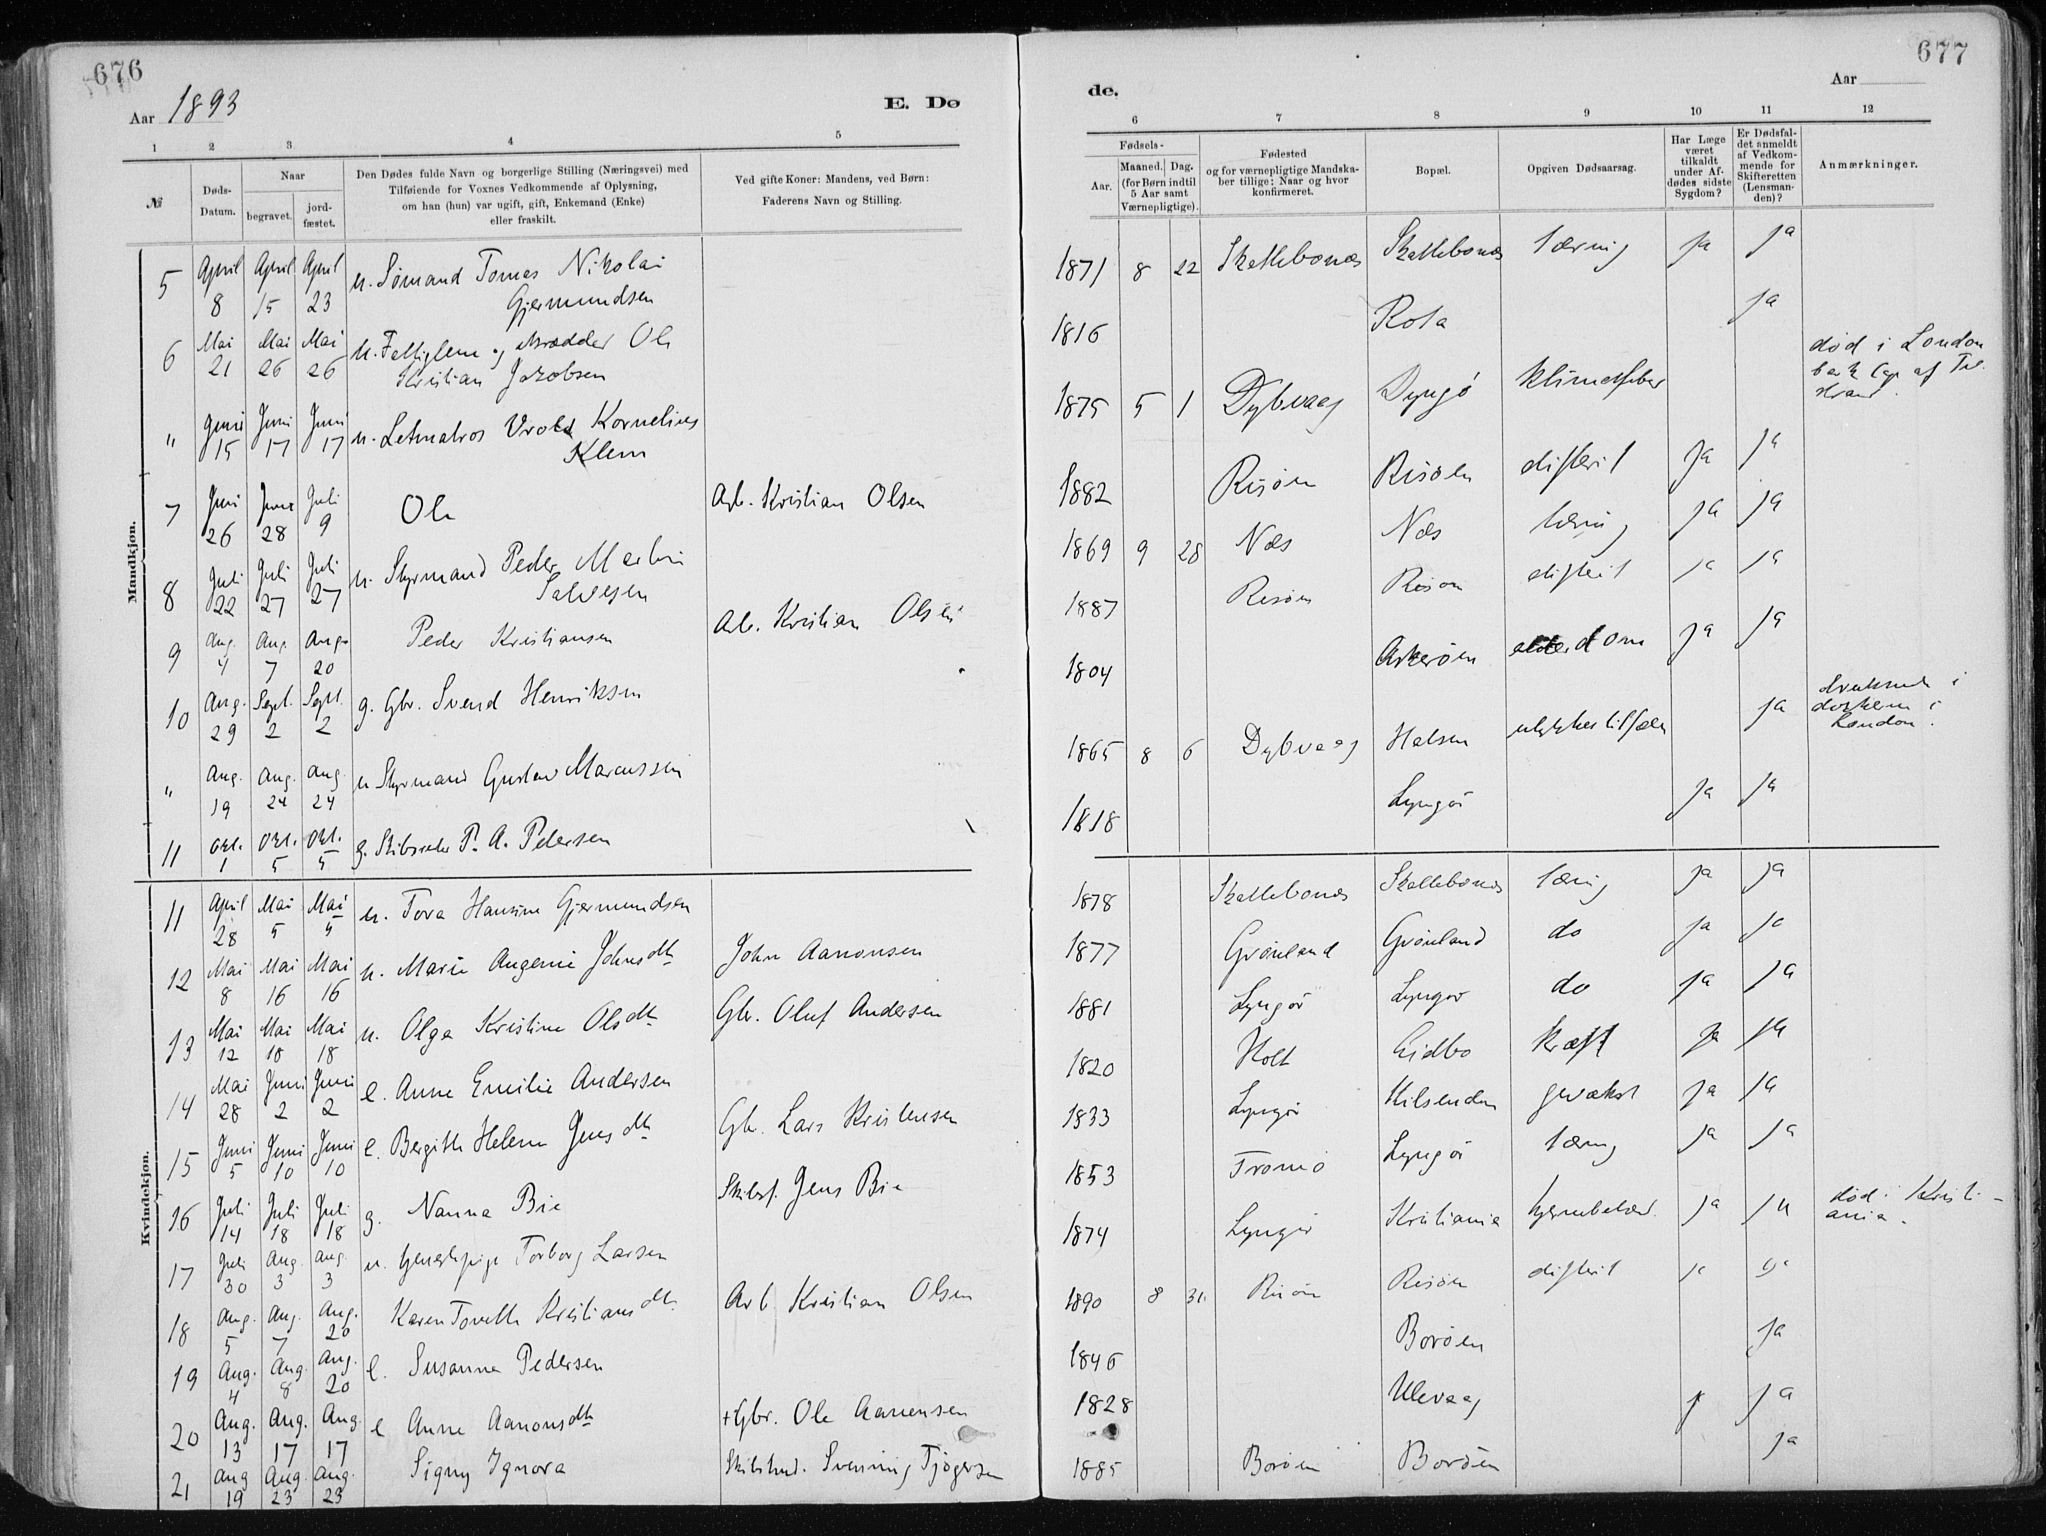 676
Aar 1893
E. Dø
1 2 3 4 5
№
Døds-
Datum.
Naar
begravet.
jord-
fæstet.
Den Dødes fulde Navn og borgerlige Stilling (Næringsvei) med
Tilføiende for Voxnes Vedkommende af Oplysning,
om han (hun) var ugift, gift, Enkemand (Enke)
eller fraskilt.
Ved gifte Koner: Mandens, ved Børn:
Faderens Navn og Stilling.
Mandkjøn.
5 April 8 April 15 April 23 u. Sømand Tomas Nikolai
Gjermundsen
6 Mai 21 Mai 26 Mai 26 u. Fattiglem og skrædder Ole
Kristian Jakobsen
" Juni 15 Juni 17 Juni 17 u. Letmatros Vrold Kornelius
Klem
7 Juni 26 Juni 28 Juli 9 Ole Arb. Kristian Olsen
8 Juli 22 Juli 27 Juli 27 u. Styrmand Peder Martin
Salvesen
9 Aug. 4 Aug. 7 Aug. 20 Peder Kristiansen Arb. Kristian Olsen
10 Aug. 29 Sept. 2 Sept. 2 g. Gbr. Svend Henriksen
" Aug. 19 Aug. 24 Aug. 24 u Styrmand Gustav Marcussen
11 Okt. 1 Okt. 5 Okt. 5 g. Skibsreder P. A. Pedersen
Kvindekjøn.
11 April 28 Mai 5 Mai 5 u. Tora Hansine Gjermundsen
12 Mai 8 Mai 16 Mai 16 u. Marie Augenie Johnsdtr John Aanonsen
13 Mai 12 Mai 18 Mai 18 u. Olga Kristine Olsdtr Gbr. Oluf Andersen
14 Mai 28 Juni 2 Juni 2 e. Anne Emilie Andersen
15 Juni 5 Juni 10 Juni 10 e. Bergithe Helene Jensdtr Gbr. Lars Kristensen
16 Juli 14 Juli 18 Juli 18 g. Nanna Bie Skibsf. Jens Bie
17 Juli 30 Aug. 3 Aug. 3 u. Torborg Larsen
18 Aug. 5 Aug. 7 Aug. 20 Karen Kristiansdtr Arb. Kristian Olsen
19 Aug. 4 Aug. 8 Aug. 20 e. Susanna Pedersen
20 Aug. 13 Aug. 17 Aug. 17 e Anne Aanonsdtr +Gbr. Ole Aanensen
21 Aug 19 Aug. 23 Aug. 23 Signy Ignora Svenning Tjøgersen
677
Aar
de.
6 7 8 9 10 11 12
Fødsels-
Aar.
Maaned. Dag.
(for Børn indtil
5 Aar samt
Værnepligtige).
Fødested
og for værnepligtige Mandska-
ber tillige: Naar og hvor
konfirmeret.
Bopæl.
Opgiven Dødsaarsag.
Har Læge
været
tilkaldt
under Af-
dødes sidste
Sygdom?
Er Dødsfal-
det anmeldt
af Vedkom-
mende for
Skifteretten
(Lensman-
den)?
Anmærkninger.
1871 8 22 Skattebonæs Skattebonæs tæring ja ja
1816 Rota ja
1875 5 1 Dybvaag Lyngø klimatfeber død i London
bark af
1882 Risøen Risøen difterit ja ja
1869 9 28 Næs Næs tæring ja ja
1887 Risøen Risøen difterit ja ja
1804 Askerøen alderdom ja ja
1865 8 6 Dybvaag Halsen ulykkestilfælde ja druknede i
dokken i
London.
1818 Lyngør ja ja
1878 Skattebonæs Skattebonæs tæring ja ja
1877 Grønland Grønland do ja ja
1881 Lyngør Lyngør do ja ja
1820 Holt Eidbo kræft ja ja
1833 Lyngør Kilsenden gevækst ja ja
1853 Tromø Lyngør tæring ja ja
1874 Lyngør Kristiania ja ja død i Kristi-
ania.
1890 8 31 Risøen Risøen difterit ja ja
1846 Borøen ja
1828 Ulevaag ja
1885 Borøen Borøen ja